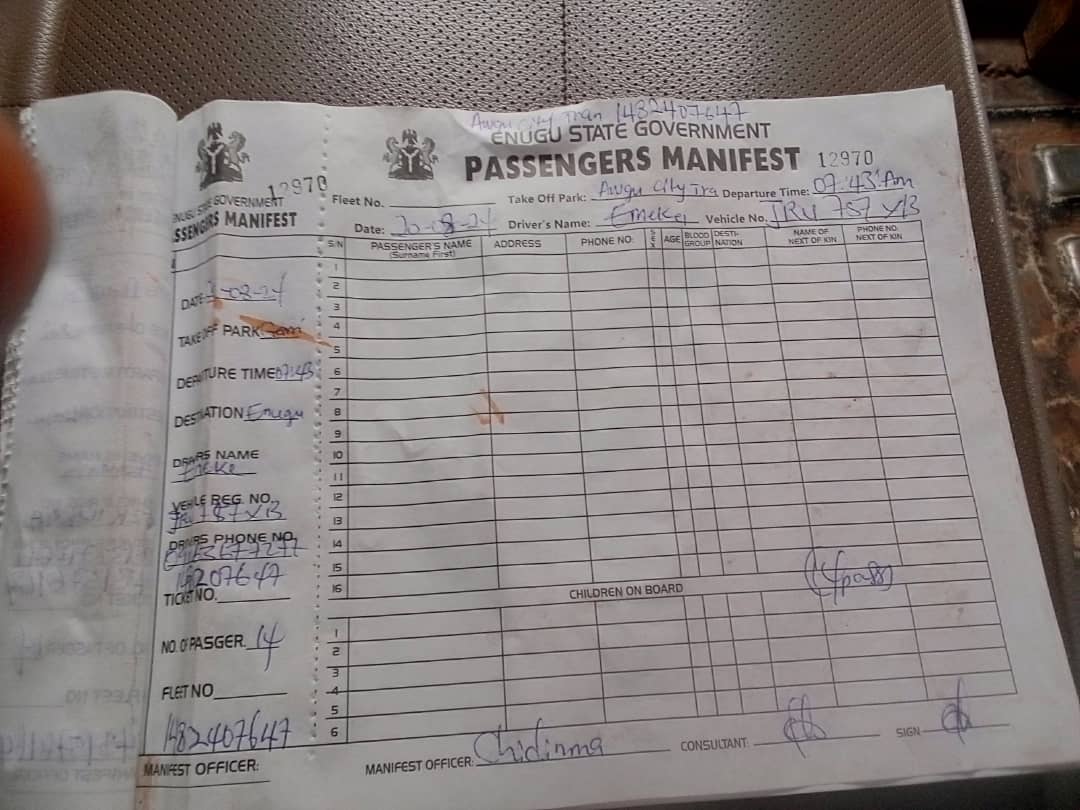 12970
ENUGU STATE GOVERNMENT
PASSENGERS MANIFEST
DATE -08-24
TAKE OFF PARK
DEPARTURE TIME 07:43
DESTINATION Enugu
DRIVERS NAME
Emeka
VEHICLE REG. NO.
JRU 787 XB
DRIVERS PHONE NO.
14207647
TICKET NO.
NO. OF PASGER. 14
FLEET NO
1482407647
MANIFEST OFFICER:
Awgu City Tran 1482407647
ENUGU STATE GOVERNMENT
PASSENGERS MANIFEST 12970
Fleet No. Take Off Park: Awgu City Tra Departure Time: 07:43 Am
Date: 20-08-24 Driver's Name: Emeka Vehicle No. JRU 787 XB
S/N PASSENGER'S NAME (Surname First) ADDRESS PHONE NO: SEX AGE BLOOD GROUP DESTI-NATION NAME OF NEXT OF KIN PHONE NO. NEXT OF KIN
1
2
3
4
5
6
7
8
9
10
11
12
13
14
15
16
14 pass
CHILDREN ON BOARD
1
2
3
4
5
6
MANIFEST OFFICER: Chidinma CONSULTANT: SIGN